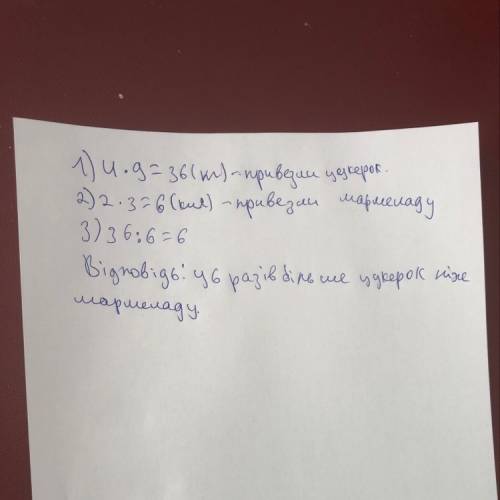 1) 4 · 9 = 36 (кг) - привезли цукерок.
2) 2 · 3 = 6 (кг) - привезли мармеладу
3) 36 : 6 = 6
Відповідь: у 6 разів більше цукерок ніж
мармеладу.